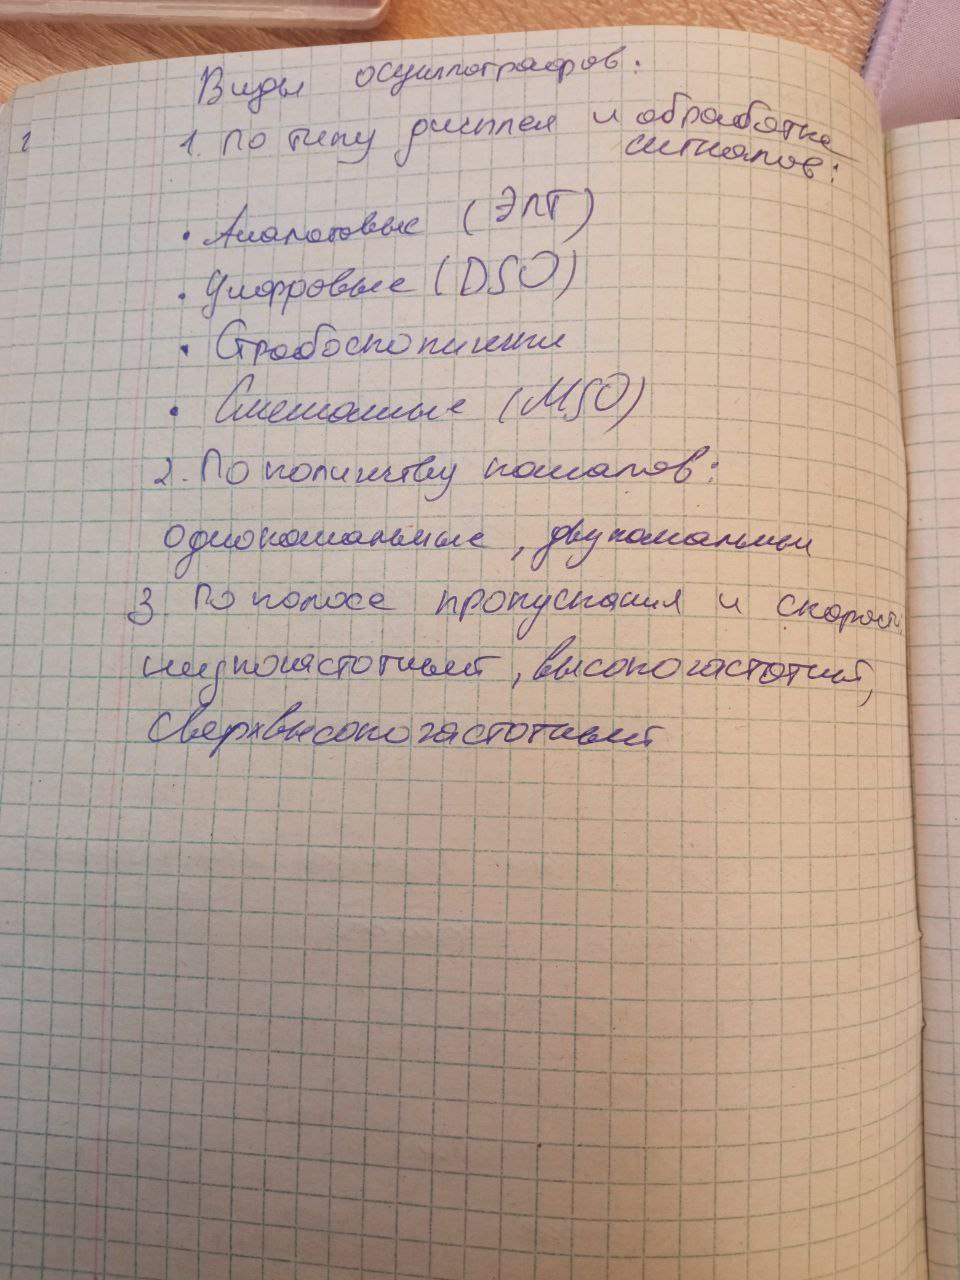 Виды осциллографов:
1. По типу дисплея и обработке
сигналов:
• Аналоговые (ЭЛТ)
• Цифровые (DSO)
• Стробоскопички
• Смешанные (MSO)
2. По количству каналов:
одноканальные, двуканальные
3 По полосе пропускания и скорости:
низкочастотный, высокочастотный,
сверхвысокочастотный